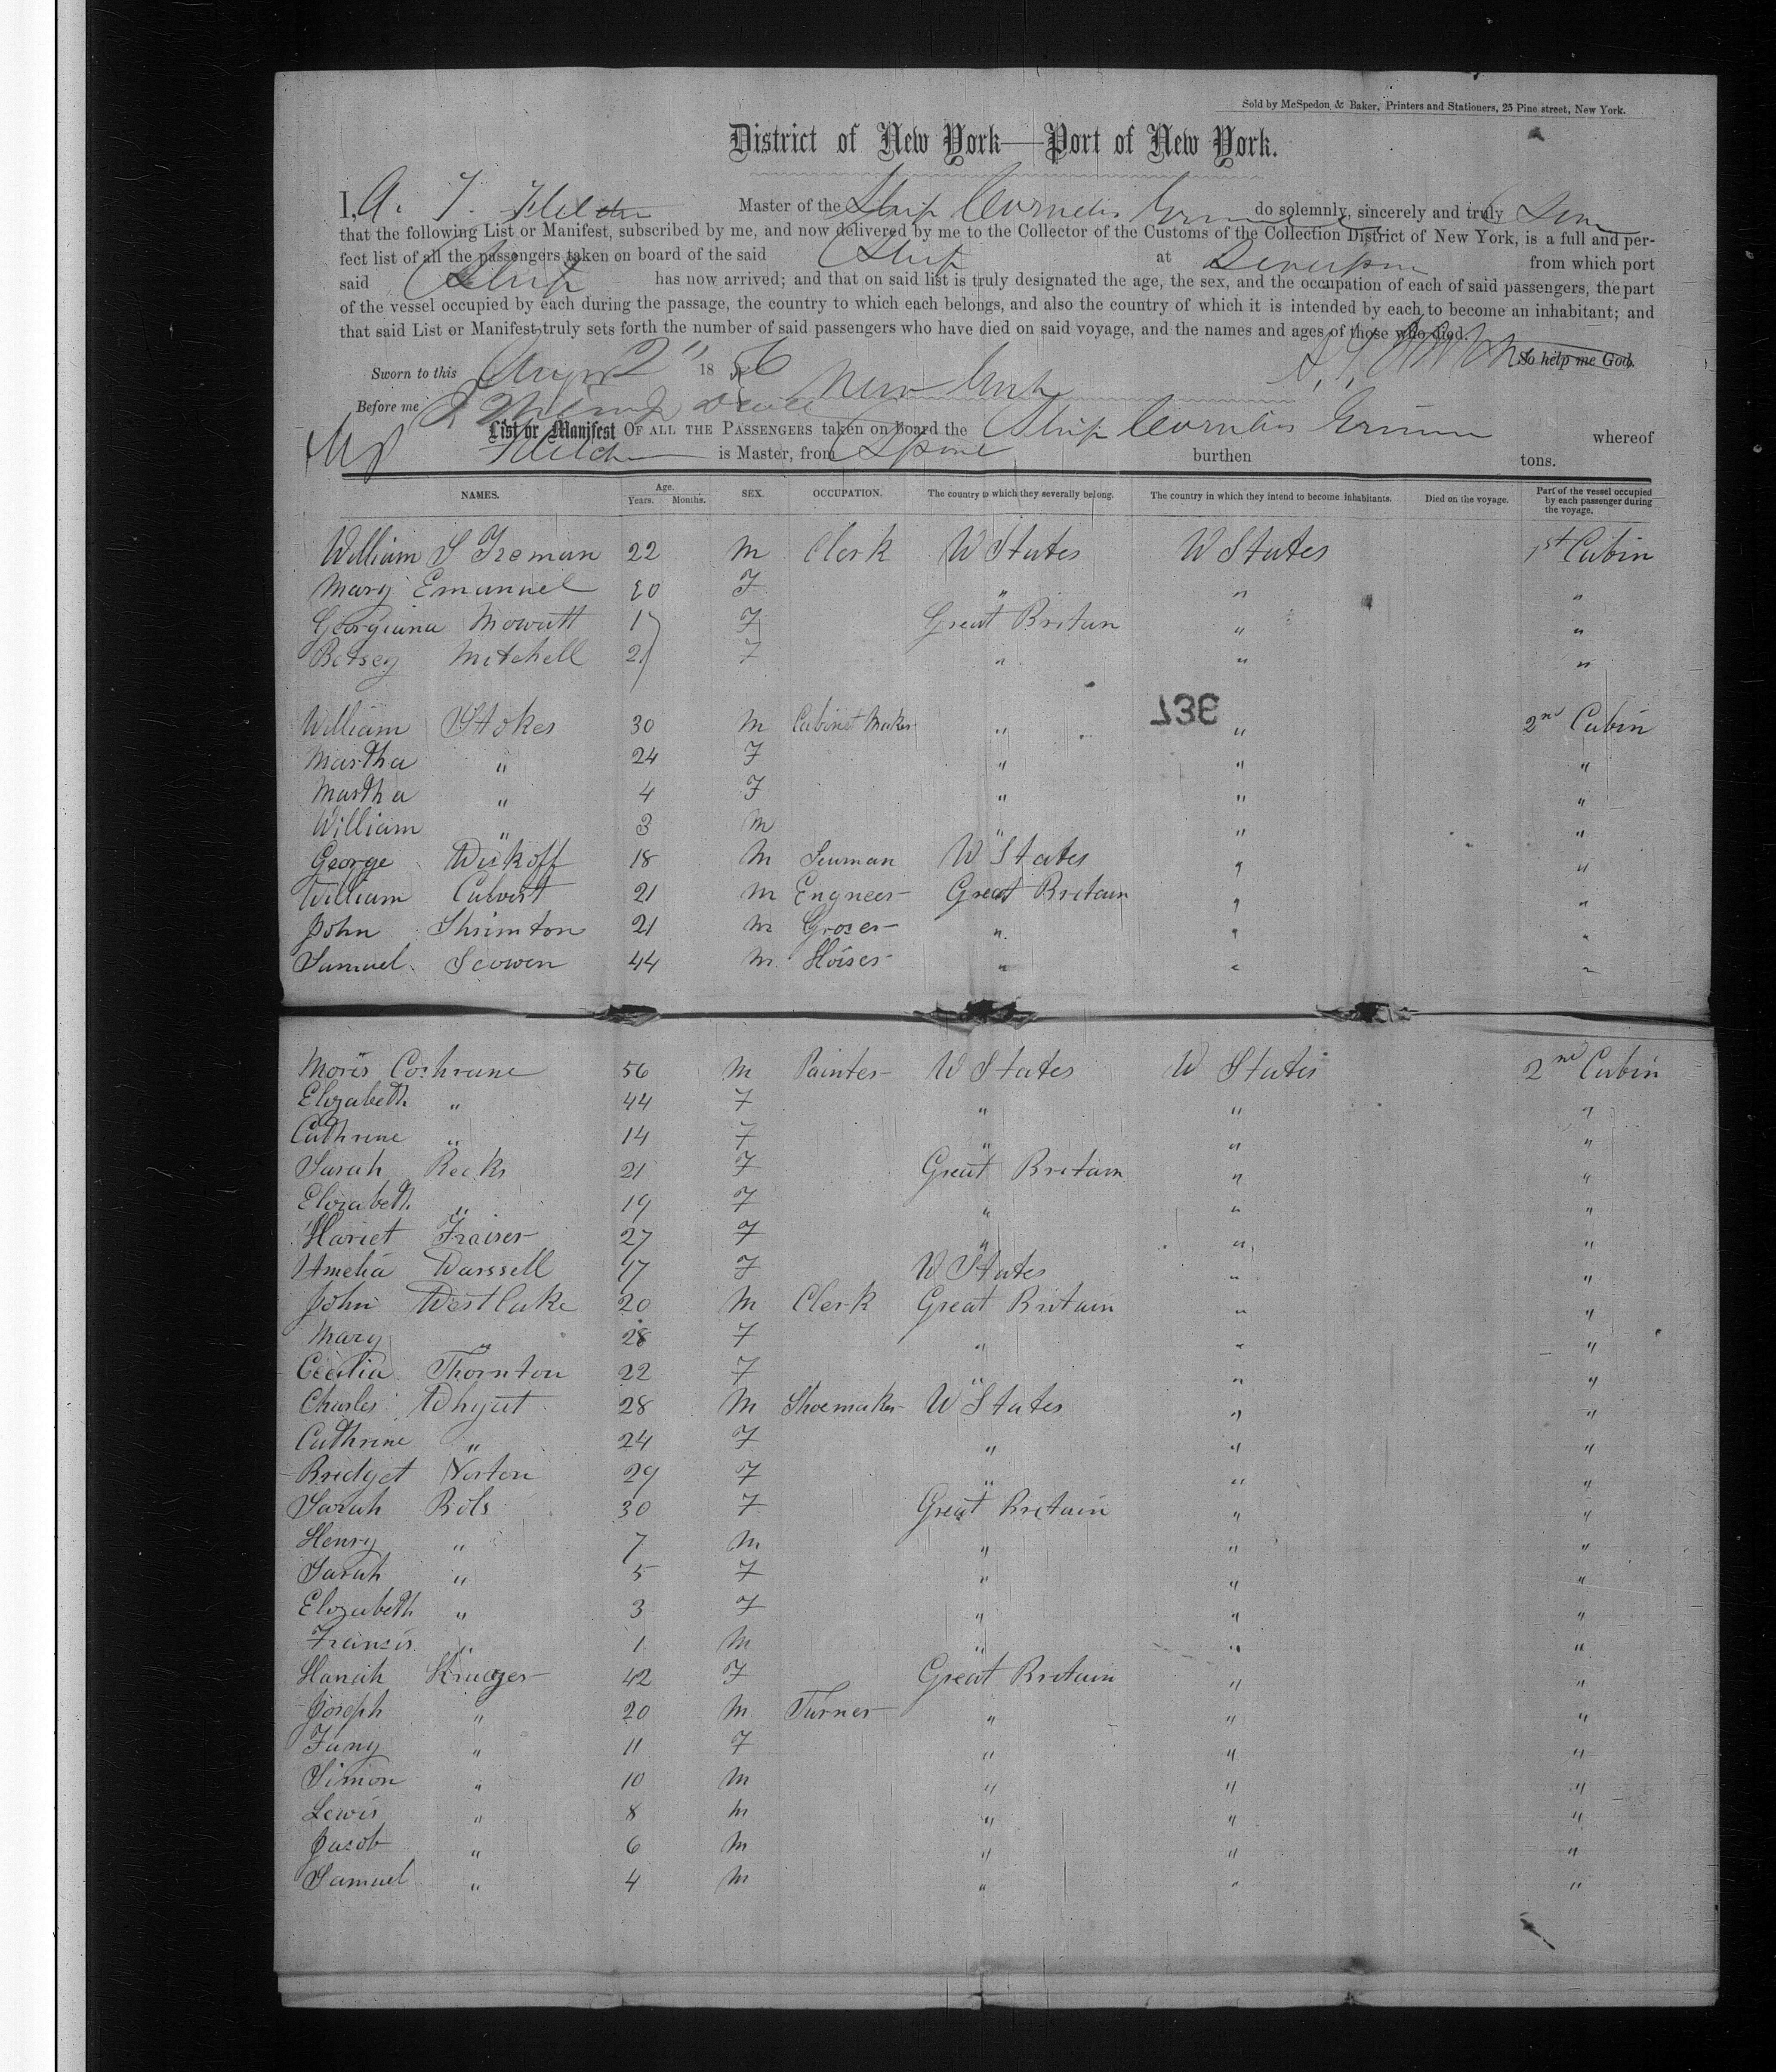 Sold by McSpedon & Baker, Printers and Stationers, 25 Pine street, New York.
District of New York—Port of New York.
I, A. T. Master of the Ship Cornelius do solemnly, sincerely and truly
that the following List or Manifest, subscribed by me, and now delivered by me to the Collector of the Customs of the Collection District of New York, is a full and per-
fect list of all the passengers taken on board of the said Ship at from which port
said Ship has now arrived; and that on said list is truly designated the age, the sex, and the occupation of each of said passengers, the part
of the vessel occupied by each during the passage, the country to which each belongs, and also the country of which it is intended by each to become an inhabitant; and
that said List or Manifest truly sets forth the number of said passengers who have died on said voyage, and the names and ages of those who died.
So help me God.
Sworn to this Augst 2" 1856 New York
Before me
List or Manifest OF ALL THE PASSENGERS taken on board the Ship Cornelius whereof
is Master, from burthen tons.
NAMES. Age. Years. Months. SEX. OCCUPATION. The country to which they severally belong. The country in which they intend to become inhabitants. Died on the voyage. Part of the vessel occupied by each passenger during the voyage.
William S Freman 22 M Clerk U States U States 1st Cabin
Mary Emanuel 20 F " " "
Georgiana Mowatt 17 F Great Britan " "
Betsey Mitchell 21 F " " "
937
William Stokes 30 M Cabinet Maker " " 2nd Cabin
Martha " 24 F " " "
Martha " 4 F " " "
William " 3 M " " "
George Wickoff 18 M Seaman U States " "
William Calvert 21 M Engneer Great Britain " "
John Shrimton 21 M Grocer " " "
Samuel Scowen 44 M Hosier " " "
Moris Cochrane 56 M Painter U States U States 2nd Cabin
Elizabeth " 44 F " " "
Cathrine " 14 F " " "
Sarah Reeks 21 F Great Britain " "
Elizabeth " 19 F " " "
Hariet Fraiser 27 F " " "
Amelia Warssell 17 F U States " "
John Westlake 20 M Clerk Great Britain " "
Mary " 28 F " " "
Cecilia Thornton 22 F " " "
Charles Whyat 28 M Shoemaker U States " "
Cathrine " 24 F " " "
Bridget Norton 29 F " " "
Sarah Bols 30 F Great Britain " "
Henry " 7 M " " "
Sarah " 5 F " " "
Elizabeth " 3 F " " "
Francis " 1 M " " "
Hanah Kruger 42 F Great Britain " "
Joseph " 20 M Turner " " "
Fany " 11 F " " "
Simon " 10 M " " "
Lewis " 8 M " " "
Jacob " 6 M " " "
Samuel " 4 M " " "